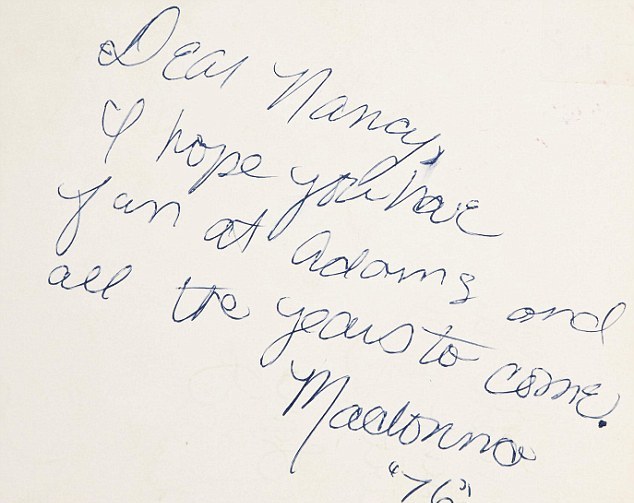 Dear Nancy,
I hope you have
fun at Adams and
all the years to come.
Madonna
"76"